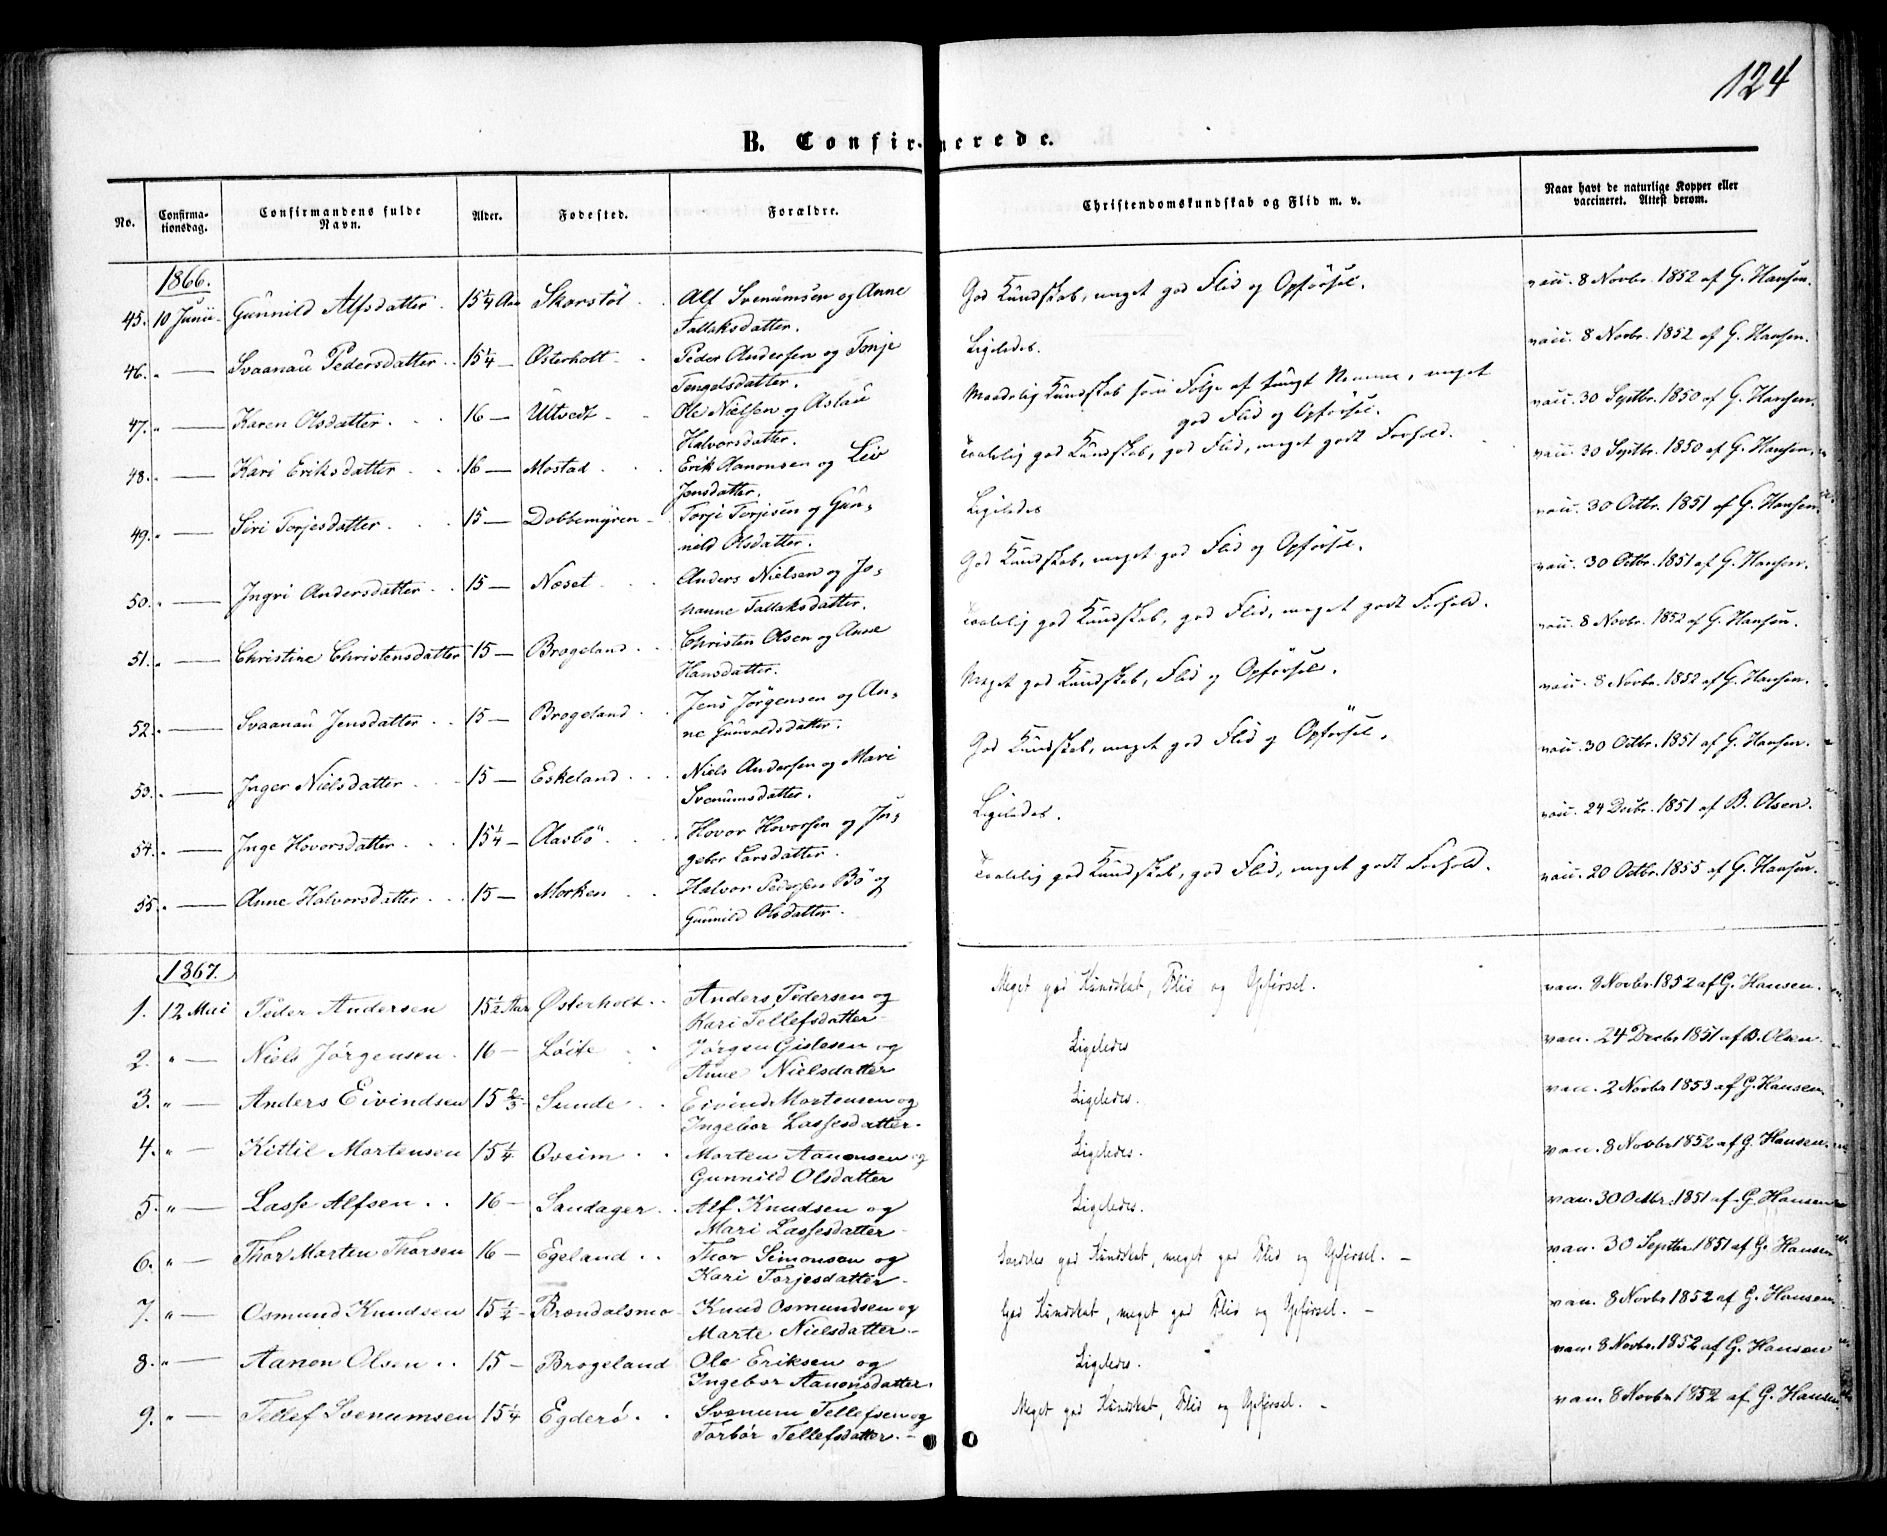 124
B. Confirmerede.
No. Confirma-tionsdag. Confirmandens fulde Navn. Alder. Fødested. Forældre. Christendomskundskab og Flid m. v. Naar havt de naturlige Kopper eller vaccineret. Attest derom.
1866.
45. 10 Junii Gunnild Alfsdatter. 15 1/4 Aar Skarstöl Alf Svenumsen og Anne God Kundskab, meget god Flid og Opförsel. 8 Novbr. 1852 af G. Hansen.
Tallaksdatter.
46. " — Svaanau Pedersdatter 15 1/4 — Østerholt Peder Andersen og Tonje Ligeledes. 8 Novbr. 1852 af G. Hansen.
Tengelsdatter.
47. " — Karen Olsdatter. 16 — Ultvedt Ole Nielsen og Aslau Maadelig Kundskab som Følge af tungt Nemme, meget 30 Septbr. 1850 af G. Hansen.
Halvorsdatter. god Flid og Opförsel.
48. " — Kari Eriksdatter 16 — Mostad Erik Aanonsen og Liv Taalelig god Kundskab, god Flid, meget godt Forhold. 30 Septbr. 1850 af G. Hansen.
Jensdatter.
49. " — Siri Torjesdatter. 15 — Dobbemyren Torje Terjesen og Gun- Ligeledes 30 Octbr. 1851 af G. Hansen.
nild Olsdatter.
50. " — Ingri Andersdatter 15 — Næset Anders Nielsen og Jo- God Kundskab, meget god Flid og Opförsel. 30 Octbr. 1851 af G. Hansen.
hanne Tallaksdatter.
51. " — Christine Christensdatter 15 — Brogeland Christen Olsen og Anne Taalelig god Kundskab, god Flid, meget godt Forhold. 8 Novbr. 1852 af G. Hansen.
Hansdatter.
52. " — Svaanau Jensdatter 15 — Brogeland Jens Jörgensen og An- Meget god Kundskab, Flid og Opförsel. 8 Novbr. 1852 af G. Hansen.
ne Gunvaldsdatter.
53. " — Inger Nielsdatter 15 — Eskeland Niels Andersen og Mari God Kundskab, meget god Flid og Opförsel. 30 Octbr. 1851 af G. Hansen.
Svenumsdatter.
54. " — Inge Hovorsdatter 15 1/4 — Aasbö Hovor Hovorsen og In- Ligeledes. 24 Decbr. 1851 af B. Olsen.
gebor Larsdatter.
55. " — Anne Halvorsdatter 15 — Morken Halvor Pedersen Bö og Taalelig god Kundskab, god Flid, meget godt Forhold. 20 Octbr. 1855 af G. Hansen.
Gunnild Olsdatter.
1867.
1. 12 Mai Peder Andersen 15 1/2 Aar Østerholt Anders Pedersen og Meget god Kundskab, Flid og Opførsel. vac. 8 Novbr. 1852 af G. Hansen.
Kari Tellefsdatter
2. " — Niels Jørgensen 16 — Løite Jørgen Gislesen og Ligeledes vac. 24 Decbr 1851 af B. Olsen.
Anne Nielsdatter
3. " — Anders Eivindsen 15 2/3 — Sunde Eivind Mortensen og Ligeledes. vac. 2 Novbr 1853 af G. Hansen.
Ingebor Lassesdatter.
4. " — Kittil Mortensen 15 1/4 Oveim Morten Aanonsen og Ligeledes. vac. 8 Novbr 1852 af G. Hansen.
Gunnild Olsdatter
5. " — Lasse Alfsen 16 — Sandager Alf Knudsen og Ligeledes. vac. 30 Octbr. 1851 af G. Hansen
Mari Lassesdatter
6. " — Thor Marten Thorsen 16 — Egeland Thor Simonsen og Særdeles god Kundskab, meget god Flid og Opførsel. — vac. 30 Septbr 1851 af G. Hansen
Kari Torjesdatter
7. " — Osmund Knudsen 15 1/2 — Brændalsmo Knud Osmundsen og God Kundskab, meget god Flid og Opførsel. — vac. 8 Novbr 1852 af G. Hansen
Marte Nielsdatter
8. " — Aanon Olsen 15 — Brogeland Ole Eriksen og Ligeledes. vac. 8 Novbr. 1852 af G. Hansen
Ingebor Aanonsdatter.
9. " — Tellef Svenumsen 15 1/4 Egderö Svenum Tellefsen og Meget god Kundskab, Flid og Opførsel. — vac. 8 Novbr 1852 af G. Hansen
Torbör Tellefsdatter. —